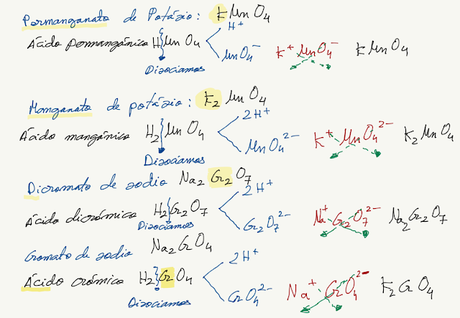 Permanganato de Potásio: KMnO4
H+
Ácido permangánico HMnO4 MnO4- K+ MnO4- KMnO4
Dizociamos
Manganato de potásio: K2MnO4
2H+
Ácido mangánico H2MnO4 MnO4 2- K+ MnO4 2- K2MnO4
Dizociamos
Dicromato de sodio Na2Cr2O7
2H+
Ácido dicrómico H2Cr2O7 Cr2O7 2- Na+ Cr2O7 2- Na2Cr2O7
Dizociamos
Cromato de sodio Na2CrO4
2H+
Ácido crómico H2CrO4 CrO4 2- Na+ CrO4 2- K2CrO4
Dizociamos